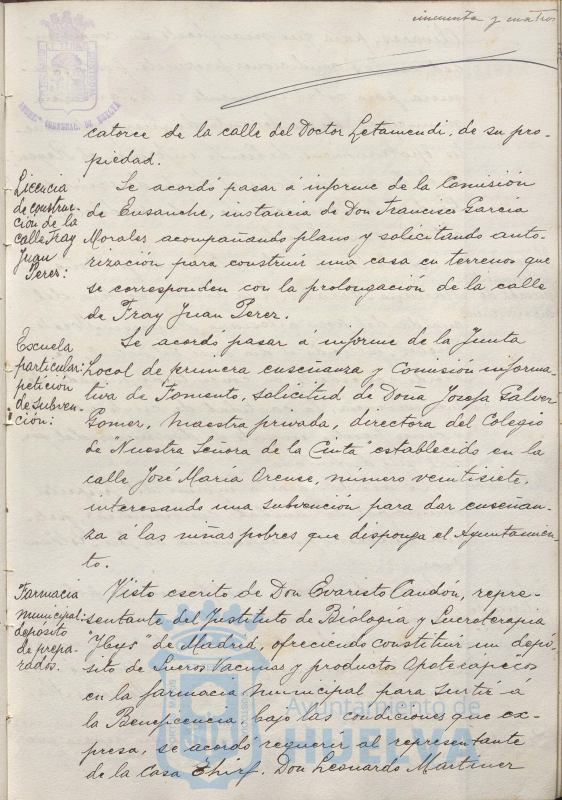 cincuenta y cuatro
catorce de la calle del Doctor Letamendi, de su pro-
piedad.
Licencia
de construc-
ción de la
calle Fray
Juan
Perez:
Se acordó pasar á informe de la Comisión
de Ensanche, instancia de Don Francisco García
Morales acompañando plano y solicitando auto-
rización para construir una casa en terrenos que
se corresponden con la prolongación de la calle
de Fray Juan Perez.
Escuela
particular:
petición
de subven-
ción:
Se acordó pasar á informe de la Junta
Local de primera enseñanza y Comisión informa-
tiva de Fomento, solicitud de Doña Josefa Galver
Gomer, Maestra privada, directora del Colegio
de "Nuestra Señora de la Cinta" establecido en la
calle José María Orense, número veintisiete,
interesando una subvención para dar enseñan-
za á las niñas pobres que disponga el Ayuntamien-
to.
Farmacia
municipal:
depósito
de prepa-
rados.
Visto escrito de Don Evaristo Candón, repre-
sentante del Instituto de Biología y Sueroterapia
"Ybys" de Madrid, ofreciendo constituir un depó-
sito de Sueros Vacunas y productos Apoterapicos
en la farmacia municipal para surtir á
la Beneficencia, bajo las condiciones que ex-
presa, se acordó requerir al representante
de la Casa Don Leonardo Martiner
Ayuntamiento de
HUELVA